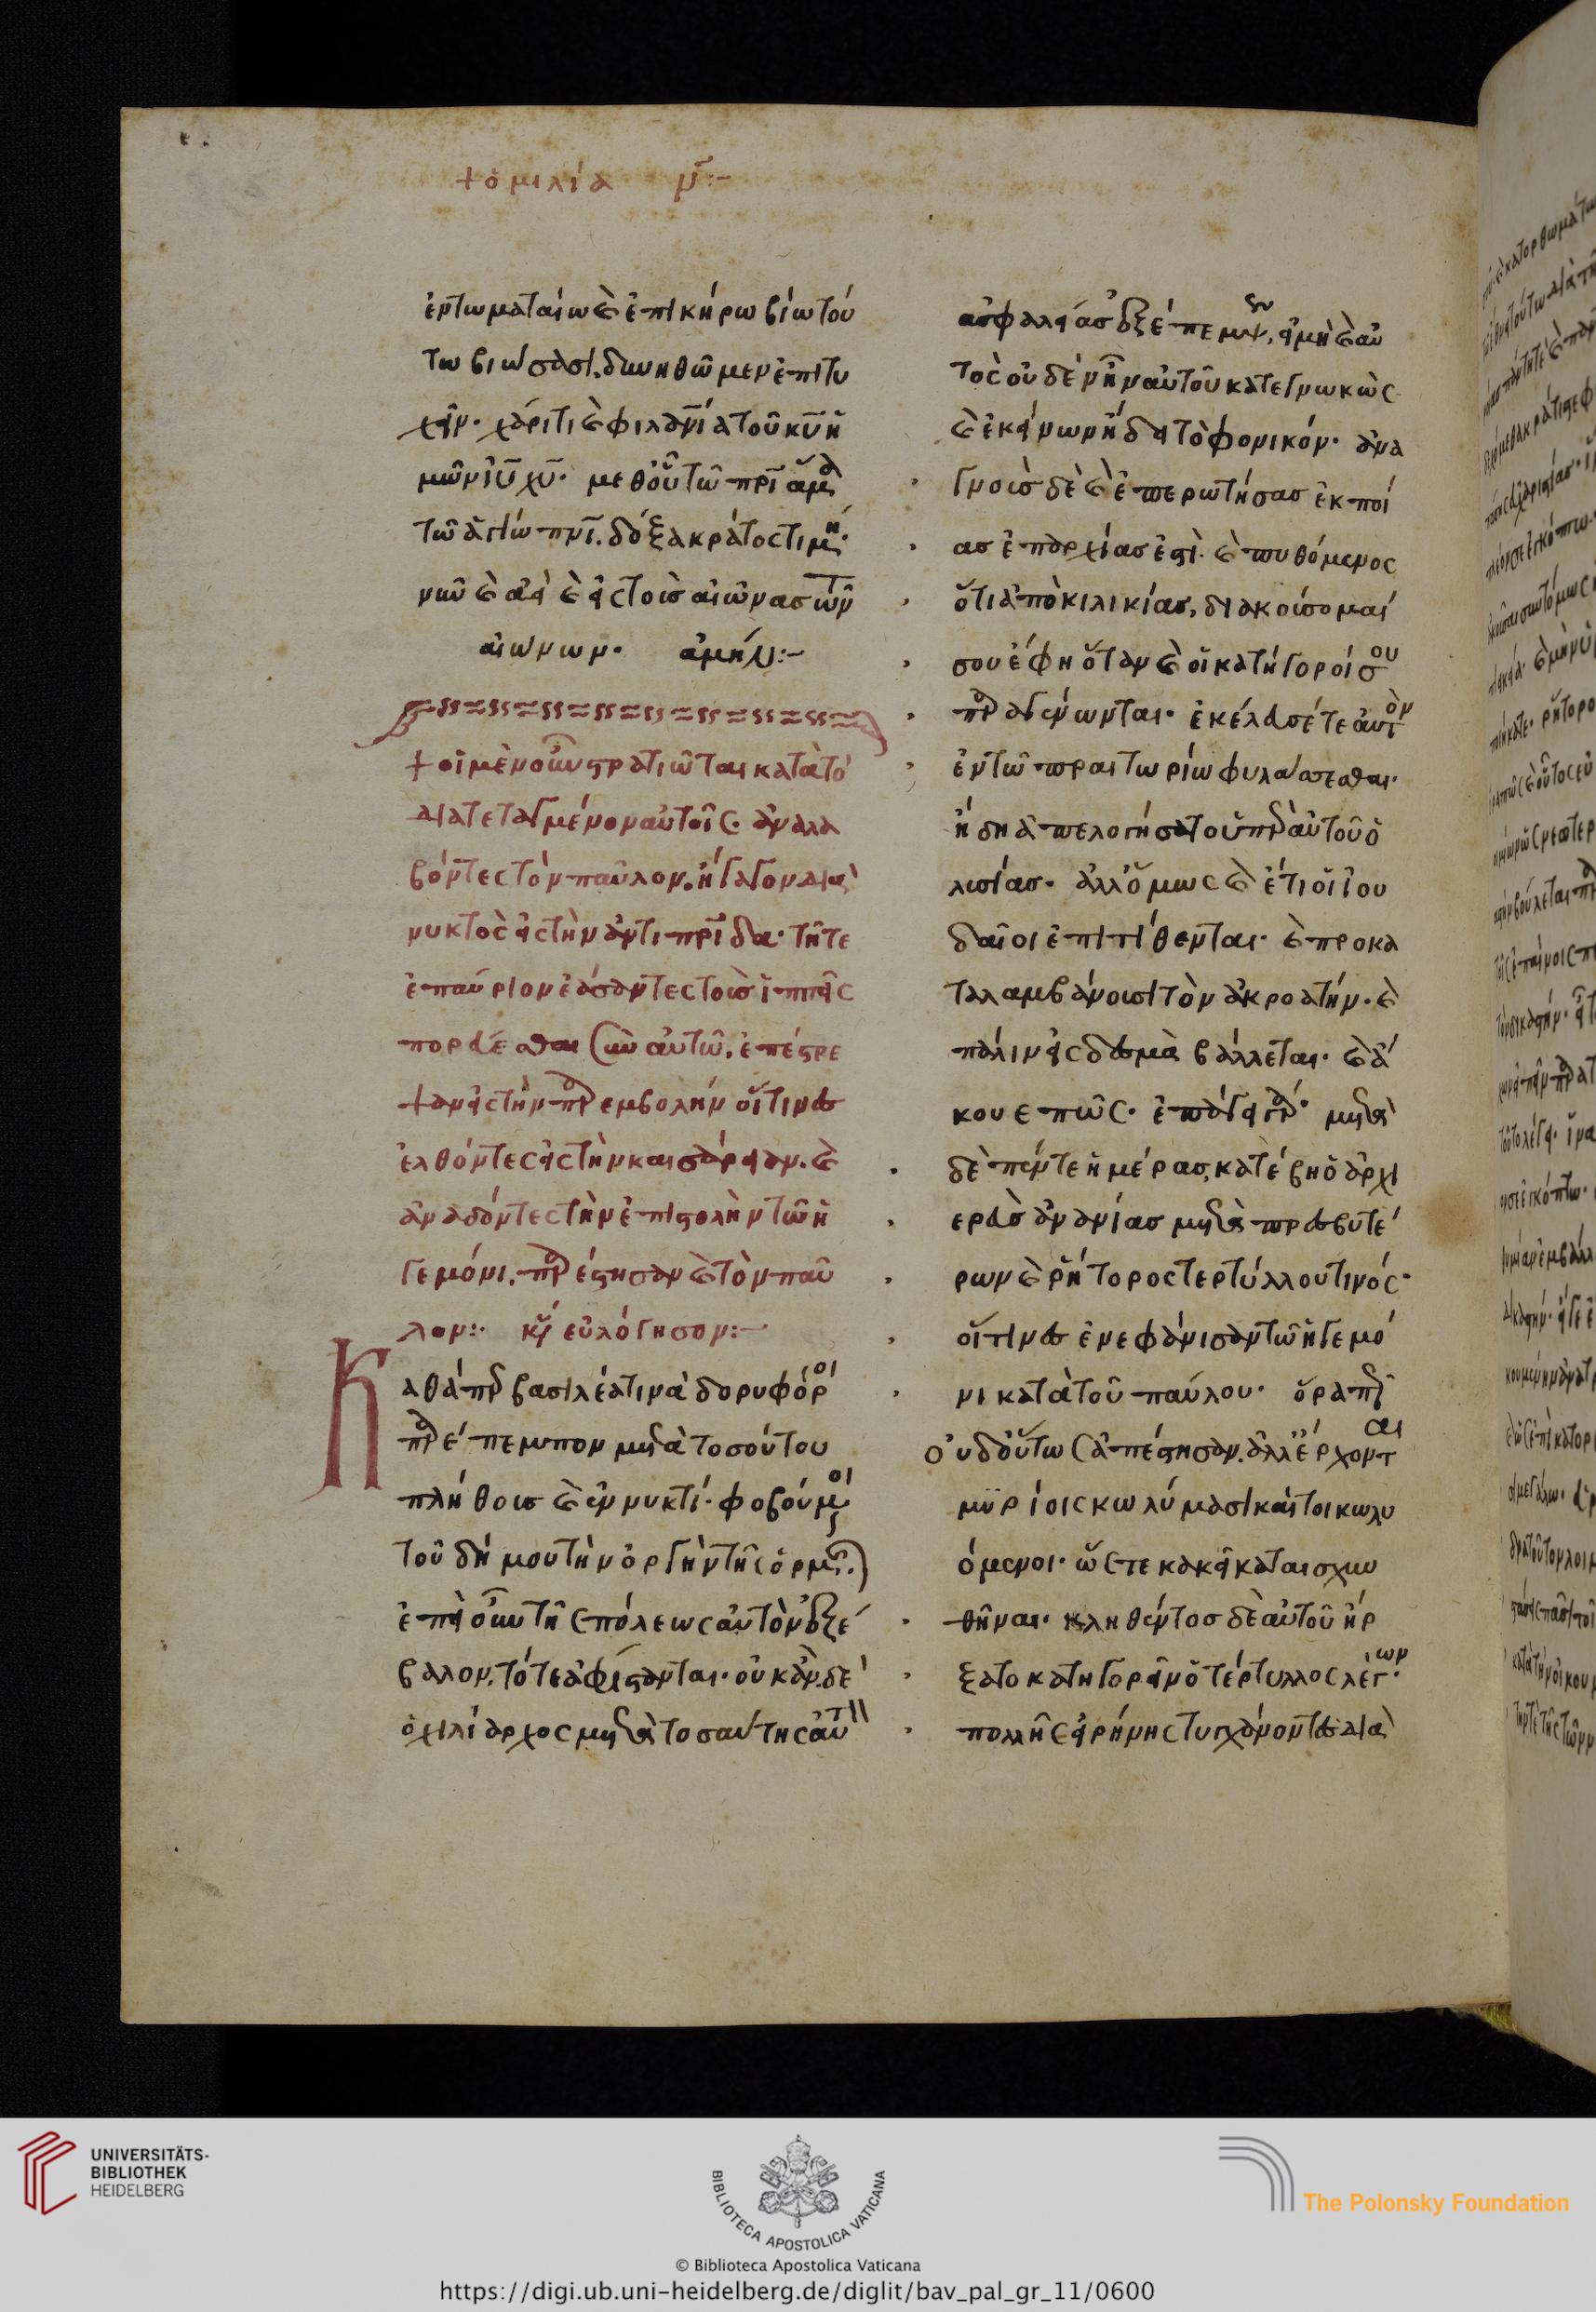 + ὁμιλία ν̅:-
ἐν τῶ ματαίω καὶ ἐπικήρω βίω τού
τω βιώσασι. δυνηθῶμεν ἐπιτυ
χεῖν. χάριτι καὶ φιλαν̅ία τοῦ κυ̅ ἡ
μῶν ἰυ̅ χυ̅. μεθ οὗ τῶ πρι̅ ἅμα
τῶ ἁγίω πνι̅. δόξα κράτος τιμή.
νῦν καὶ ἀεὶ καὶ εἰς τοὺς αἰῶνας τῶν
αἰώνων. ἀμήν:-
+ οἱ μὲν οὖν στρατιῶται κατὰ τὸ
διατεταγμένον αὐτοῖς. ἀναλα
βόντες τὸν παῦλον. ἤγαγον διὰ
νυκτὸς εἰς τὴν ἀντιπρίδα. τῆ τε
ἐπαύριον ἐάσαντες τοὺς ἱππεῖς
πορεύεσθαι σὺν αὐτῶ. ἐπέστρε
ψαν εἰς τὴν παρεμβολήν οἵτινες
ἐλθόντες εἰς τὴν καισάρειαν. καὶ
ἀναδόντες τὴν ἐπιστολὴν τῶ ἡ
γεμόνι. παρέστησαν καὶ τὸν παῦ
λον:. κε̅ εὐλόγησον:-
Καθάπερ βασιλέα τινὰ δορυφόροι
παρέπεμπον μετὰ τοσούτου
πλήθους καὶ ἐν νυκτί. φοβούμενοι
τοῦ δήμου τὴν ὀργὴν τῆς ὁρμῆς.
ἐπεὶ οὖν τῆς πόλεως αὐτὸν ἐξέ
βαλον. τότε ἀφίστανται. οὐκ ἂν δὲ
ὁ χιλίαρχος μετὰ τοσαύτης αὐτὸν
ἀσφαλείας ἐξέπεμψεν, εἰ μὴ καὶ αὐ
τὸς οὐδὲν ἦν αὐτοῦ κατεγνωκὼς
καὶ ἐκείνων ἤδει τὸ φονικόν. ἀνα
γνοὺς δὲ καὶ ἐπερωτήσας ἐκ ποί
ας ἐπαρχίας ἐστὶ. καὶ πυθόμενος
ὅτι ἀπὸ κιλικίας, διακούσομαί
σου ἔφη ὅταν καὶ οἱ κατήγοροί σου
παραγένωνται. ἐκέλευσέ τε αὐτὸν
ἐν τῶ πραιτωρίω φυλάσσεσθαι.
ἤδη ἀπελογήσατο ὑπὲρ αὐτοῦ ὁ
λυσίας. ἀλλ ὅμως καὶ ἔτι οἱ ἰου
δαῖοι ἐπιτίθενται. καὶ προκα
ταλαμβάνουσι τὸν ἀκροατήν. καὶ
πάλιν εἰς δεσμὰ βάλλεται. καὶ ἄ
κουε πῶς. ἐπάγει γάρ. μετὰ
δὲ πέντε ἡμέρας κατέβη ὁ ἀρχι
ερεὺς ἀνανίας μετὰ πρεσβυτέ
ρων καὶ ῥήτορος τερτύλλου τινός.
οἵτινες ἐνεφάνισαν τῶ ἡγεμό
νι κατὰ τοῦ παύλου. ὅρα πῶς
οὐδ οὕτως ἀπέστησαν. ἀλλ ἔρχονται
μυρίοις κωλύμασι καίτοι κωλυ
όμενοι. ὥστε κακεῖ καταισχυν
θῆναι. κληθέντος δὲ αὐτοῦ ἤρ
ξατο κατηγορεῖν ὁ τέρτυλλος λέγων.
πολλῆς εἰρήνης τυγχάνοντες διὰ
UNIVERSITÄTS-
BIBLIOTHEK
HEIDELBERG
BIBLIOTECA APOSTOLICA VATICANA
The Polonsky Foundation
© Biblioteca Apostolica Vaticana
https://digi.ub.uni-heidelberg.de/diglit/bav_pal_gr_11/0600